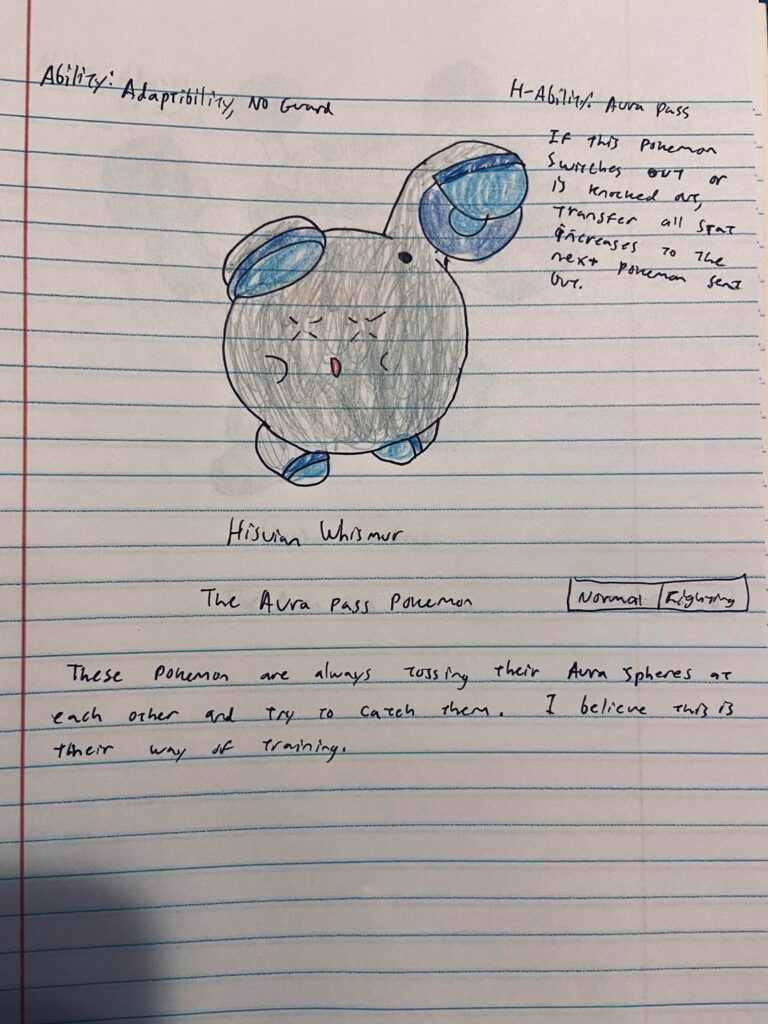 Ability: Adaptibility, No Guard
H-Ability: Aura Pass
If this Pokemon
switches out or
is knocked out,
transfer all stat
increases to the
next Pokemon sent
out.
Hisuian Whismur
The Aura Pass Pokemon
Normal Fighting
These Pokemon are always tossing their Aura Spheres at
each other and try to catch them. I believe this is
their way of training.